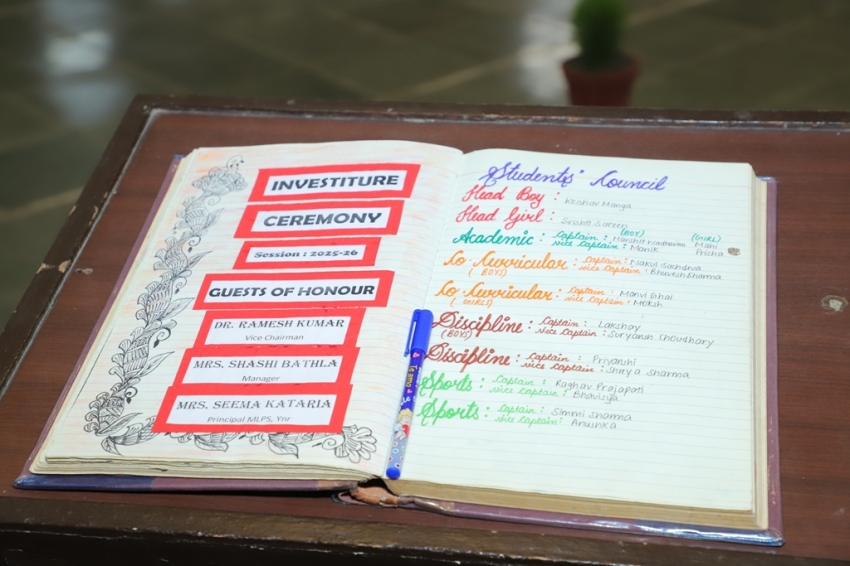 INVESTITURE
CEREMONY
Session : 2025-26
GUESTS OF HONOUR
DR. RAMESH KUMAR
Vice Chairman
MRS. SHASHI BATHLA
Manager
MRS. SEEMA KATARIA
Principal MLPS, Ynr
Students' Council
Head Boy : Keshav Manga
Head Girl : Sareen
(BOY) (GIRL)
Academic : Captain : Mani
Vice Captain : Manik Pricha
Co-Curricular : Captain : Nakul Sachdeva
(BOYS) Vice Captain : Bhavesh Sharma
Co-Curricular : Captain : Manvi
(GIRLS) Vice Captain : Moksh
Discipline : Captain : Lakshay
(BOYS) Vice Captain : Suryansh Choudhary
Discipline : Captain : Priyanshi
Vice Captain : Shreya Sharma
Sports : Captain : Raghav Prajapati
Vice Captain : Bhavisya
Sports : Captain : Simmi Sharma
Vice Captain : Anushka